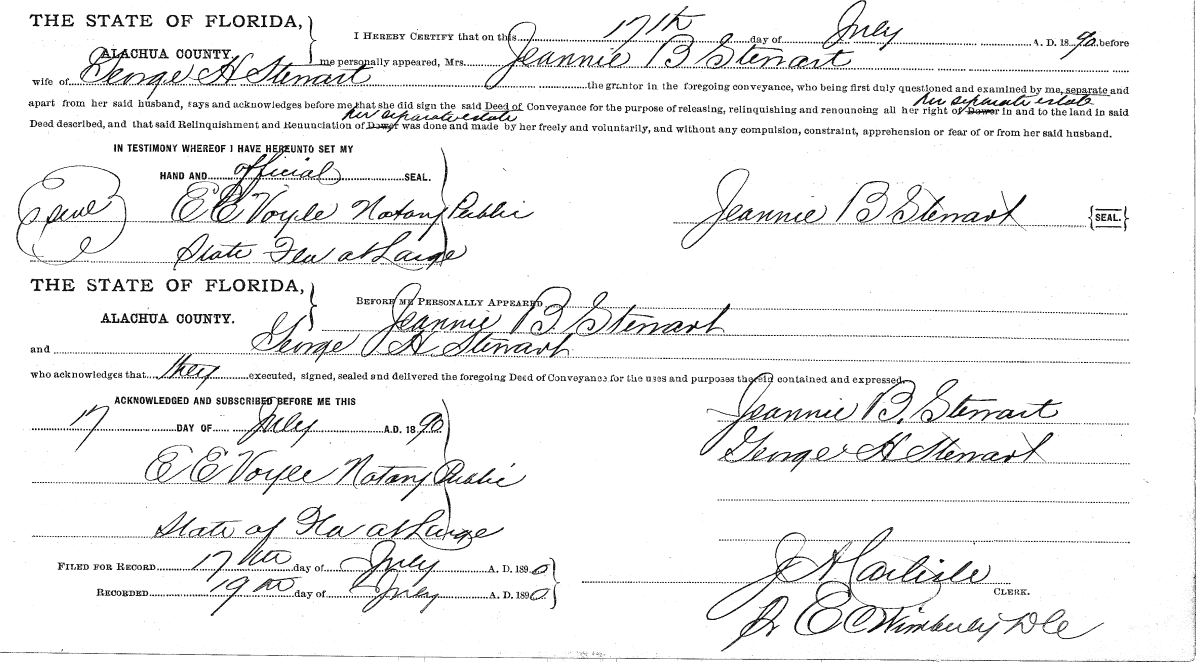 THE STATE OF FLORIDA,
ALACHUA COUNTY.
I HEREBY CERTIFY that on this 17th day of July A. D. 1890 before
me personally appeared, Mrs. Jeannie B Stewart
wife of George H Stewart the grantor in the foregoing conveyance, who being first duly questioned and examined by me, separate and
her separate estate
apart from her said husband, says and acknowledges before me that she did sign the said Deed of Conveyance for the purpose of releasing, relinquishing and renouncing all her right of Dower in and to the land in said
her separate estate
Deed described, and that said Relinquishment and Renunciation of Dower was done and made by her freely and voluntarily, and without any compulsion, constraint, apprehension or fear of or from her said husband.
IN TESTIMONY WHEREOF I HAVE HEREUNTO SET MY
HAND AND official SEAL.
E E Voyle Notary Public
State Fla at Large
Jeannie B Stewart {SEAL.}
THE STATE OF FLORIDA,
ALACHUA COUNTY.
BEFORE ME PERSONALLY APPEARED
Jeannie B Stewart
and George H Stewart
who acknowledges that they executed, signed, sealed and delivered the foregoing Deed of Conveyance for the uses and purposes therein contained and expressed.
ACKNOWLEDGED AND SUBSCRIBED BEFORE ME THIS
17 DAY OF July A.D. 1890
E E Voyle Notary Public
State of Fla at Large
Jeannie B. Stewart
George H Stewart
FILED FOR RECORD 17th day of July A. D. 1890
RECORDED 19th day of July A. D. 1890
J A Carlisle
CLERK.
E C Wimberly D C